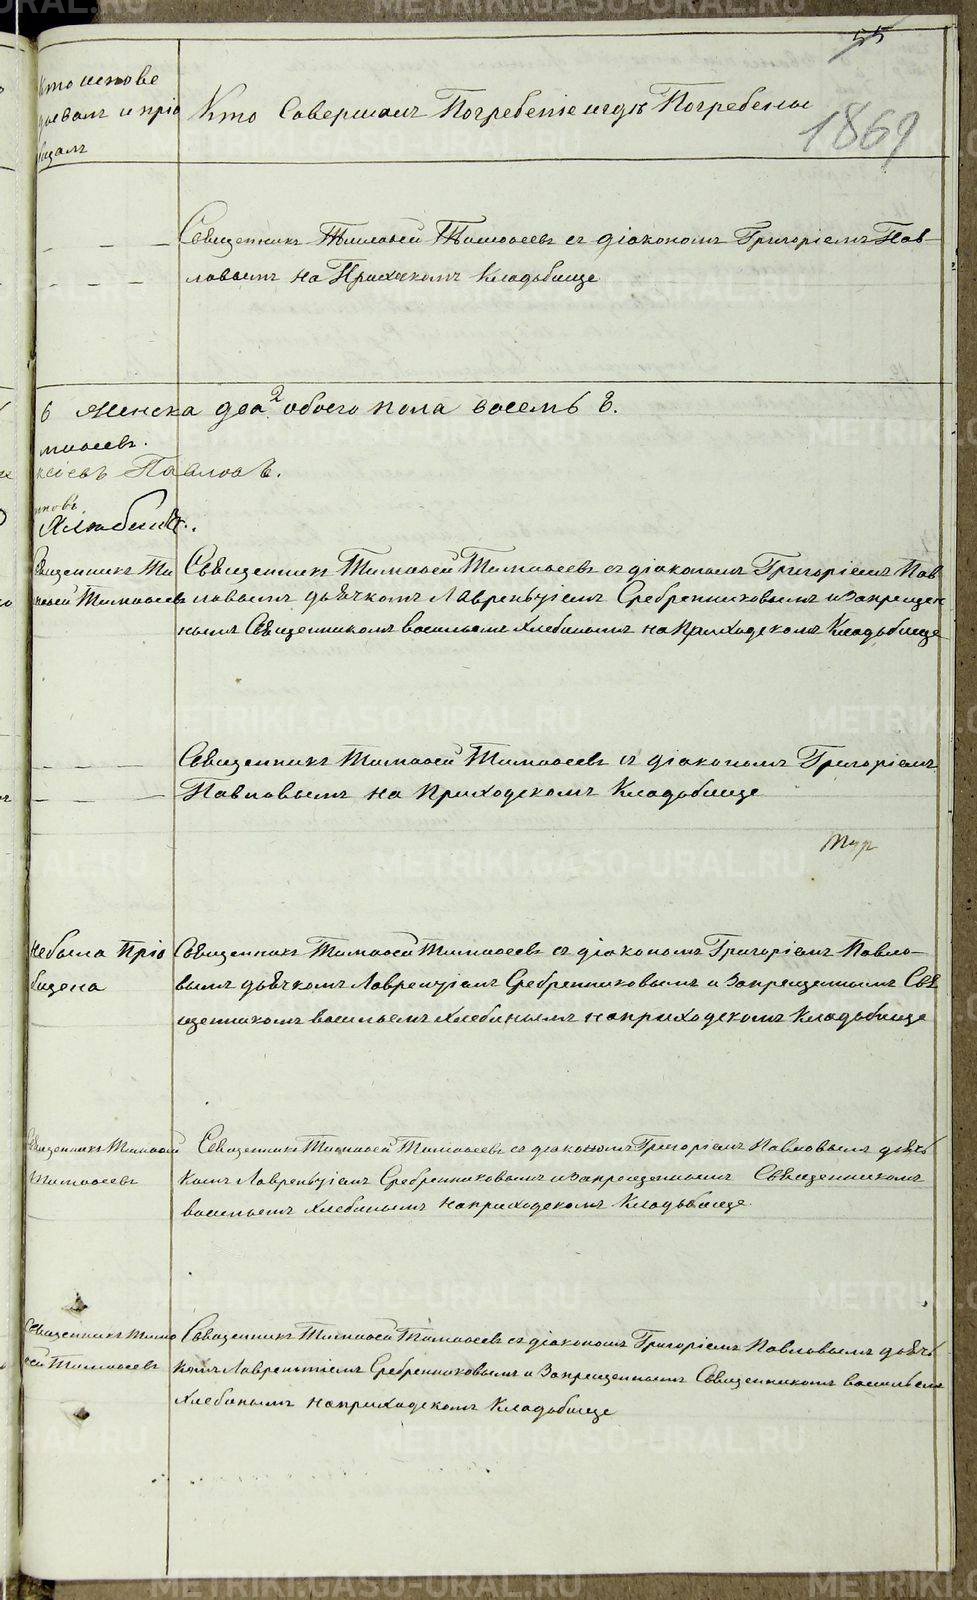 55
1869
Кто испове
дывалъ и прiо
бщалъ
Кто Совершалъ Погребенiе и гдѣ Погребены
Священникъ Тимофей Тимофеевъ съ дiакономъ Григорiемъ Пав-
ловымъ на Приходскомъ Кладбище
6 Женска два 2 обоего пола восемь 8.
мофеевъ.
Павловъ.
новъ
Хлебинъ.
Священникъ Ти
мофей Тимофеевъ
Священникъ Тимофей Тимофеевъ съ дiакономъ Григорiемъ Пав
ловымъ дьячкомъ Лаврентiемъ Сребренниковымъ и Запрещен
нымъ Священникомъ Васильемъ Хлебинымъ на Приходскомъ Кладбище
Священникъ Тимофей Тимофеевъ съ дiакономъ Григорiемъ
Павловымъ на Приходскомъ Кладбище
Не была Прiо
бщена
Священникъ Тимофей Тимофеевъ съ дiакономъ Григорiемъ Павло-
вымъ дьячкомъ Лаврентiемъ Сребренниковымъ и Запрещеннымъ Свя
щенникомъ Васильемъ Хлебинымъ на приходскомъ Кладбище
Священникъ Тимофей
Тимофеевъ
Священникъ Тимофей Тимофеевъ съ дiакономъ Григорiемъ Павловымъ дьяч
комъ Лаврентiемъ Сребренниковымъ и Запрещеннымъ Священникомъ
Васильемъ Хлебинымъ на приходскомъ Кладбище
Священникъ Тимо
фей Тимофеевъ
Священникъ Тимофей Тимофеевъ съ дiакономъ Григорiемъ Павловымъ дьяч
комъ Лаврентiемъ Сребренниковымъ и Запрещеннымъ Священникомъ Васильемъ
Хлебинымъ на приходскомъ Кладбище
METRIKI.GASO-URAL.RU